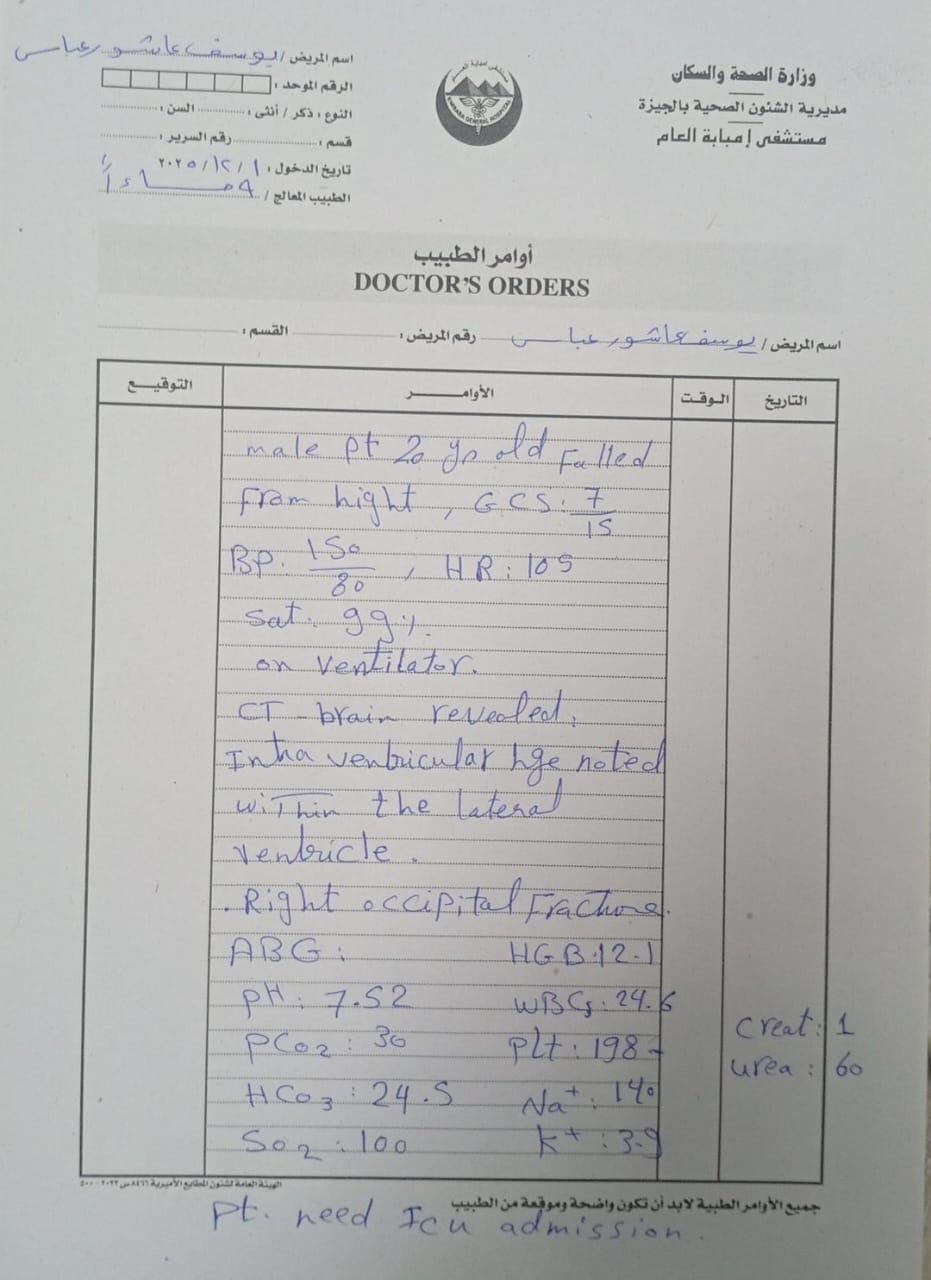 وزارة الصحة والسكان
مديرية الشئون الصحية بالجيزة
مستشفى إمبابة العام
مستشفى إمبابة العام
EMBABA GENERAL HOSPITAL
اسم المريض / يوسف عاشور عباس
الرقم الموحد :
النوع : ذكر / أنثى : السن :
قسم : رقم السرير :
تاريخ الدخول : ٢٠٢٥/١٢/١
الطبيب المعالج /
أوامر الطبيب
DOCTOR'S ORDERS
اسم المريض / يوسف عاشور عباس رقم المريض : القسم :
التاريخ الوقت الأوامر التوقيع
male pt 20 yrs old Falled
From hight , GCS: 7/15
BP: 150/80 , HR: 105
Sat: 99%.
on ventilator.
CT brain revealed:
Intra ventricular hge noted
within the lateral
ventricle.
. Right occipital Fracture.
ABG: HGB: 12.1
PH: 7.52 WBCs: 24.6
PCO2: 30 Plt: 198
HCO3: 24.5 Na+: 140
SO2: 100 K+: 3.9
Creat: 1
urea: 60
جميع الأوامر الطبية لابد أن تكون واضحة وموقعة من الطبيب
الهيئة العامة لشئون المطابع الأميرية ٨٤٦٦ س ٢٠٢٢-٥٠٠
Pt. need ICU admission.